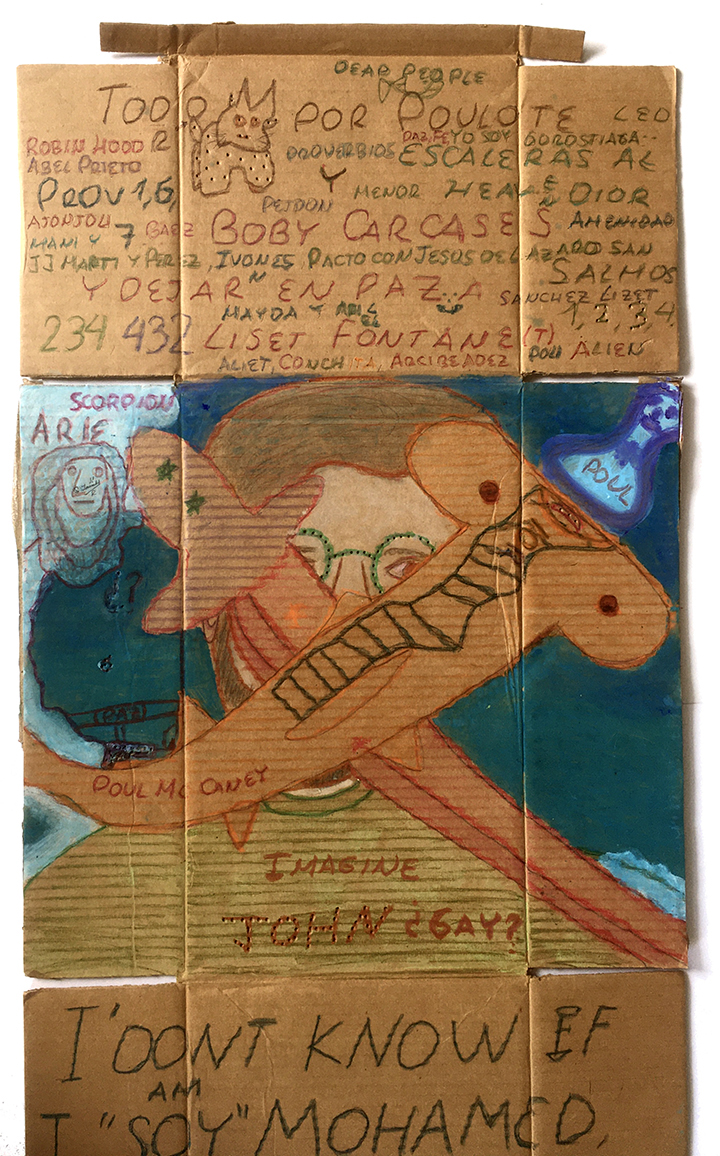 DEAR PEOPLE
TODO POR POULOTE LEO
ROBIN HOOD R PROVERBIOS DAZ, FE YO SOY GOROSTIAGA..
ABEL PRIETO Y ESCALERAS AL
PROV 1,6, MENOR HEAVEN DIOR
PEJDON
AJONJOLI 7 BAEZ BOBY CARCASES AMENIDAD
MANI Y
JJ MARTI Y PEREZ, IVONES PACTO CON JESUS DE LAZARO SAN
SALMOS
Y DEJAR EN PAZ A SANCHEZ LIZET
MAYDA Y 1,2,3,4
234 432 LISET FONTANE(T)
ALIET, CONCHITA, ARCIBEADEZ POLI ALIEN
SCORPION
ARIE
POUL
PAZ
POUL MC CANEY
IMAGINE
JOHN ¿GAY?
I'DONT KNOW IF
AM
I "SOY" MOHAMED,